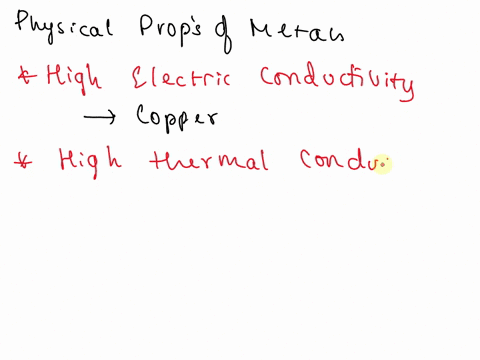 Physical Prop's of Metals
* High Electric Conductivity
→ Copper
* High thermal condu